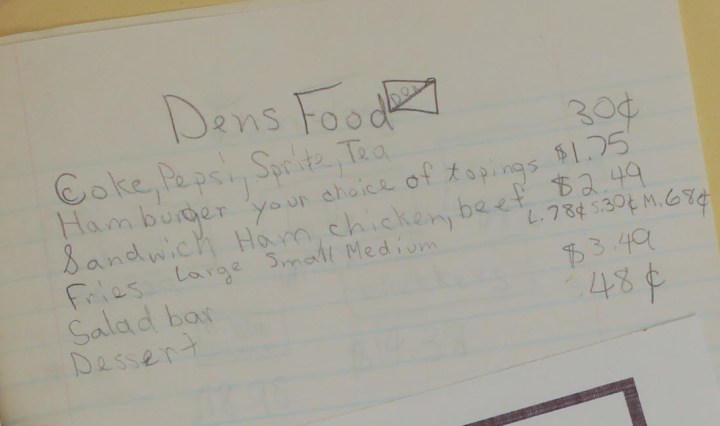 Dens Food Den
Coke, Pepsi, Sprite, Tea 30¢
Hamburger your choice of topings $1.75
Sandwich Ham, chicken, beef $2.49
Fries Large Small Medium L.78¢ S.30¢ M.68¢
Salad bar $3.49
Dessert 48¢